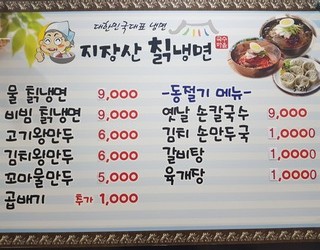 대한민국대표 냉면
지장산 칡냉면
물 칡냉면 9,000
비빔 칡냉면 9,000
고기왕만두 6,000
김치왕만두 6,000
꼬마물만두 5,000
곱빼기 투가 1,000
-동절기 메뉴-
옛날 손칼국수 9,000
김치 손만두국 1,0000
갈비탕 1,0000
육개장 1,0000